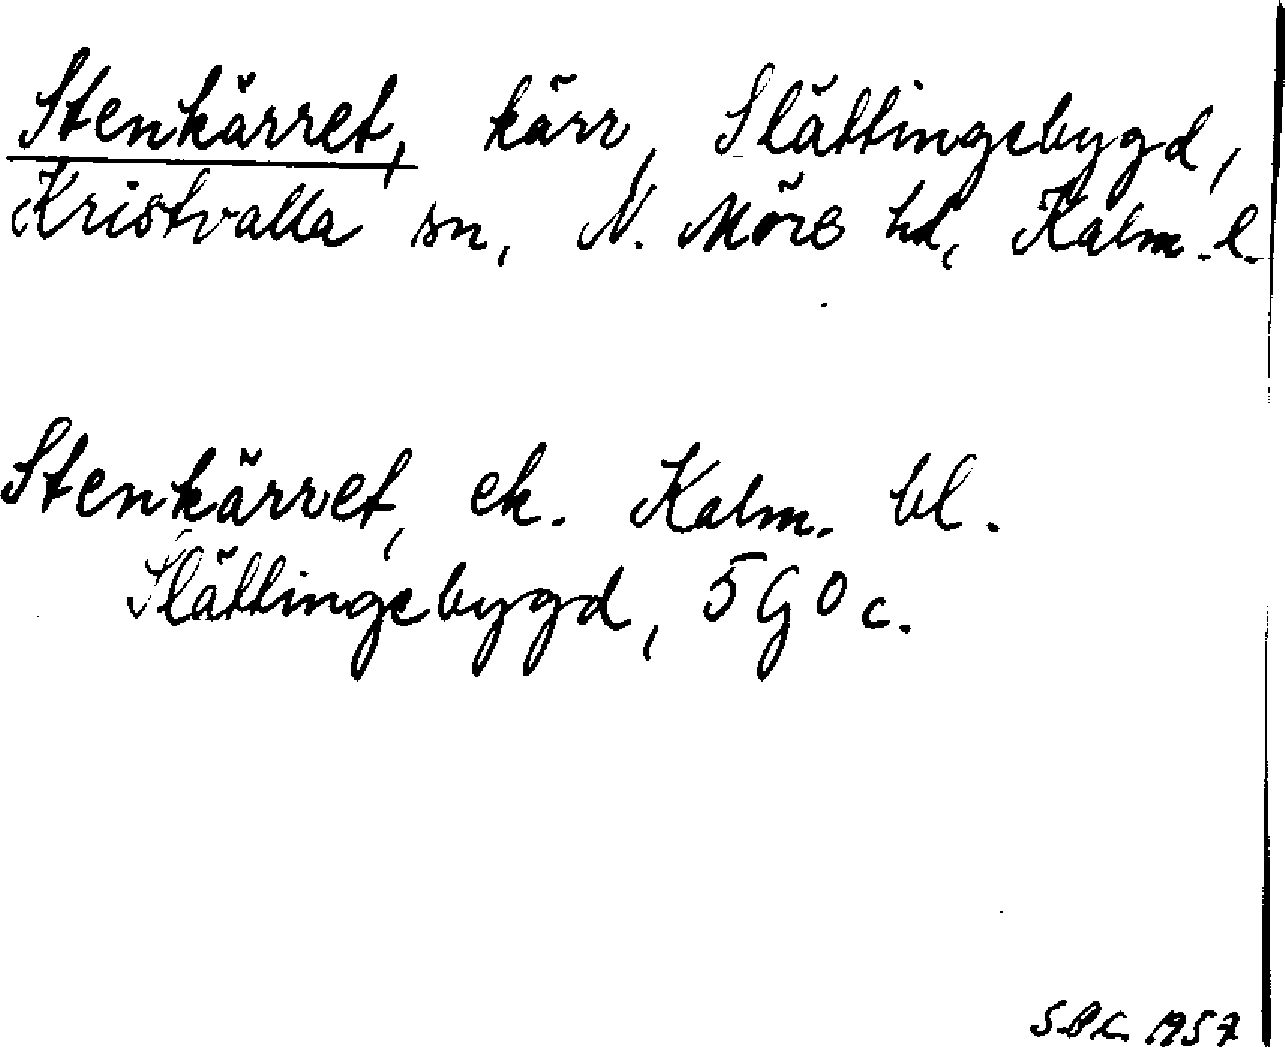 Stenkärret, kärr, Slättingebygd,
Kristvalla sn, N. Möre hd, Kalm. l.
Stenkärret, ek. Kalm. bl.
Slättingebygd, 5 G o c.
1957